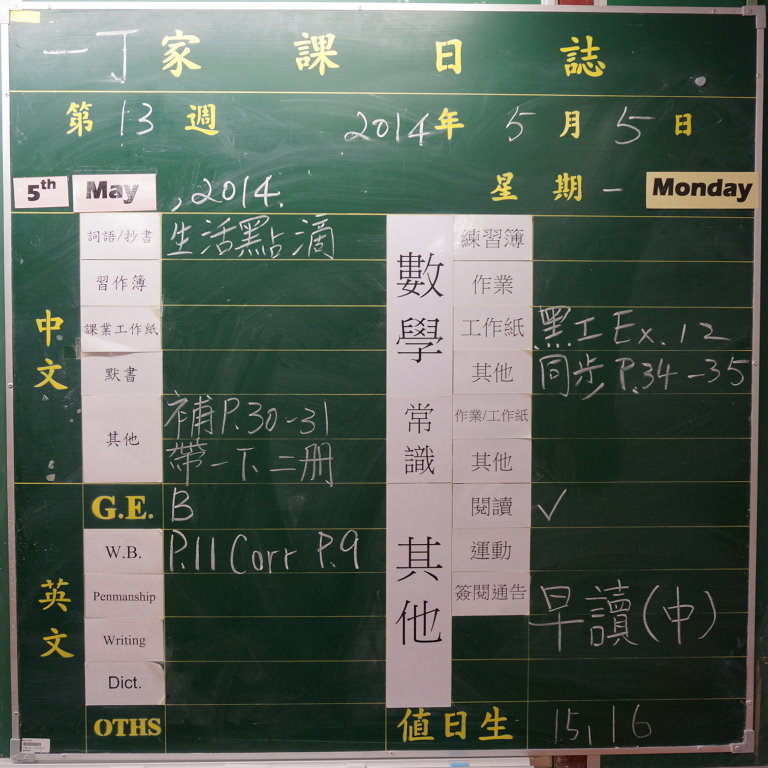 一丁家課日誌
第13週 2014年5月5日
5th May, 2014. 星期一 Monday
中文
詞語/抄書 生活點滴
習作簿
課業工作紙
默書
其他 補P.30-31
帶一下.二冊
英文
G.E. B
W.B. P.11 Corr P.9
Penmanship
Writing
Dict.
OTHS
數學
練習簿
作業
工作紙 黑工Ex.12
其他 同步P.34-35
常識
作業/工作紙
其他
其他
閱讀 ✓
運動
簽閱通告
早讀(中)
值日生 15,16